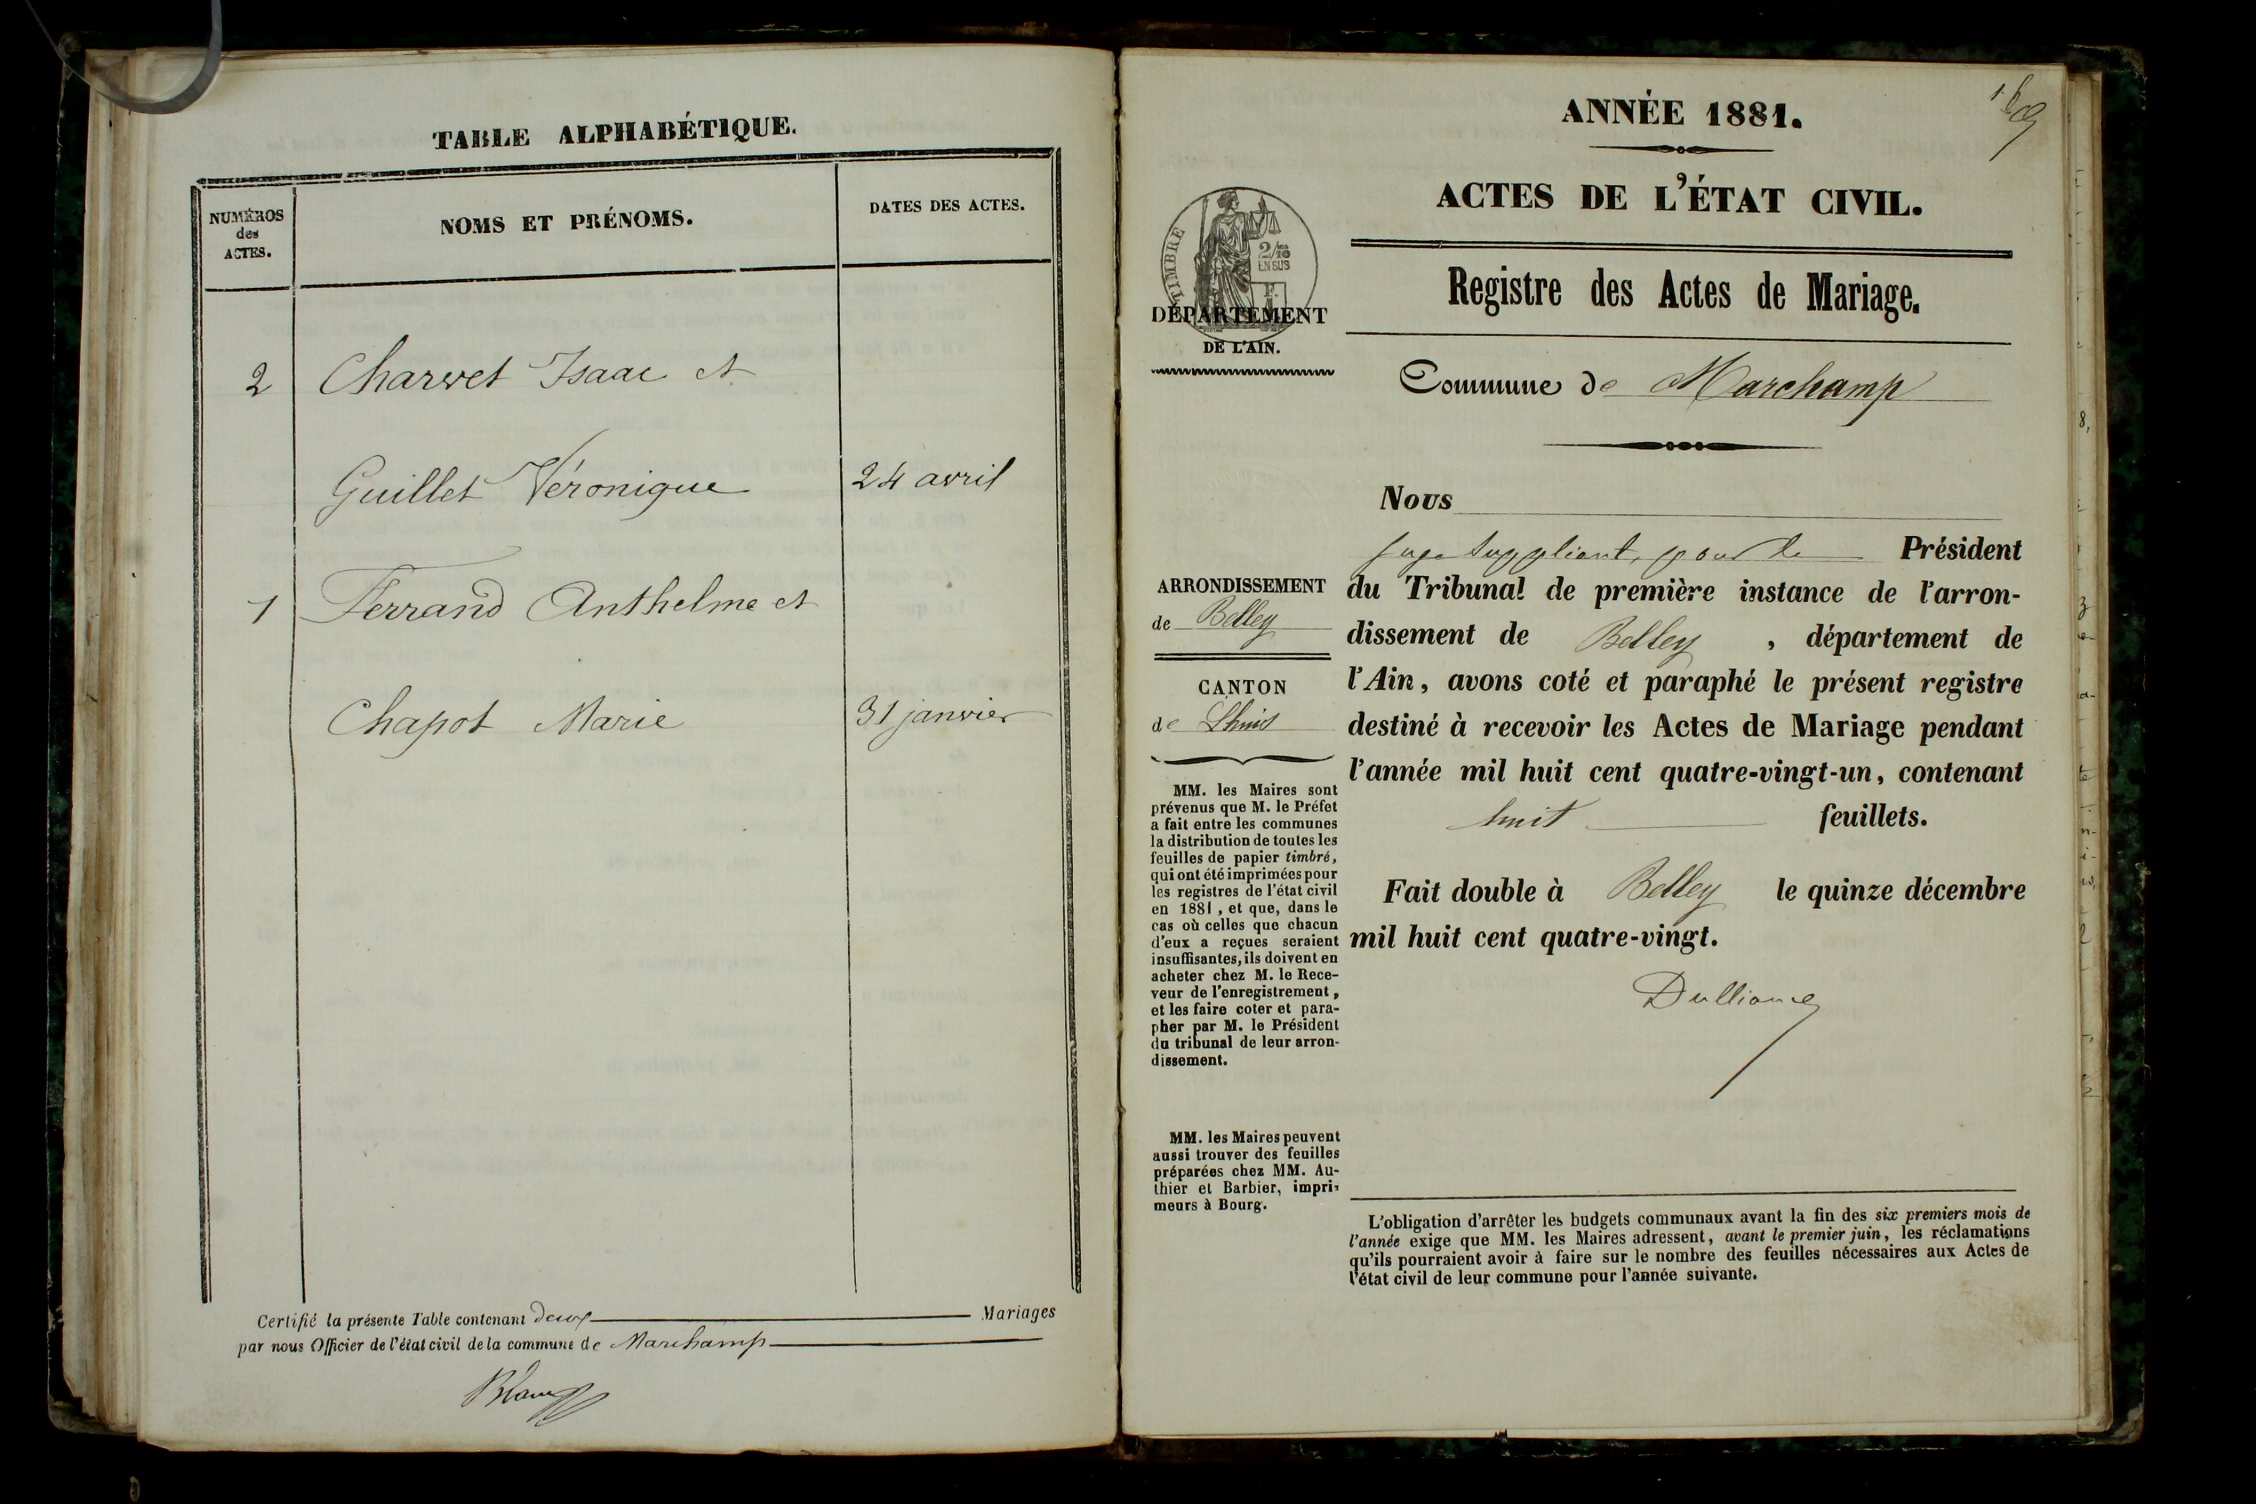 TABLE ALPHABÉTIQUE.
NUMÉROS
des
ACTES.
NOMS ET PRÉNOMS.
DATES DES ACTES.
2 Charvet Isaac et
Guillet Véronique 24 avril
1 Ferrand Anthelme et
Chapot Marie 31 janvier
Certifié la présente Table contenant deux Mariages
par nous Officier de l'état civil de la commune de Marchamp
ANNÉE 1881.
ACTES DE L'ÉTAT CIVIL.
TIMBRE
2/10
EN SUS
DÉPARTEMENT
DE L'AIN.
Registre des Actes de Mariage.
Commune de Marchamp
ARRONDISSEMENT
de Belley
CANTON
de Lhuis
MM. les Maires sont
prévenus que M. le Préfet
a fait entre les communes
la distribution de toutes les
feuilles de papier timbré,
qui ont été imprimées pour
les registres de l'état civil
en 1881, et que, dans le
cas où celles que chacun
d'eux a reçues seraient
insuffisantes, ils doivent en
acheter chez M. le Rece-
veur de l'enregistrement,
et les faire coter et para-
pher par M. le Président
du tribunal de leur arron-
dissement.
MM. les Maires peuvent
aussi trouver des feuilles
préparées chez MM. Au-
thier et Barbier, impri-
meurs à Bourg.
Nous
Juge suppléant, pour le Président
du Tribunal de première instance de l'arron-
dissement de Belley, département de
l'Ain, avons coté et paraphé le présent registre
destiné à recevoir les Actes de Mariage pendant
l'année mil huit cent quatre-vingt-un, contenant
huit feuillets.
Fait double à Belley le quinze décembre
mil huit cent quatre-vingt.
L'obligation d'arrêter les budgets communaux avant la fin des six premiers mois de
l'année exige que MM. les Maires adressent, avant le premier juin, les réclamations
qu'ils pourraient avoir à faire sur le nombre des feuilles nécessaires aux Actes de
l'état civil de leur commune pour l'année suivante.